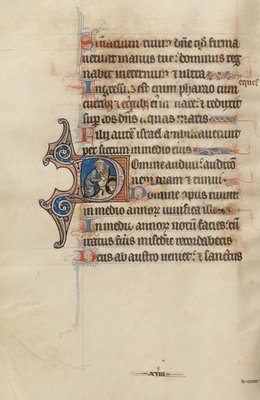 Sc̄uarium tuum dn̄e qđ firma
uerunt manus tue: dominus reg
nabit in eternum & ultra
eques
Ingressus est enim pharao cum
curribȝ & equitibȝ eius in mare: & reduxit
sup eos dn̄s aquas maris
Filii autem israel ambulauerunt
per siccum in medio eius
Domine audiui auditio
nem tuam & timui
Domine opus tuum
in medio annoꝝ uiuifica illud
In medio annoꝝ notum facies: cū
iratus fuis misc̄die recordaberis
Deus ab austro ueniet: & sanctus
xviii
de monte